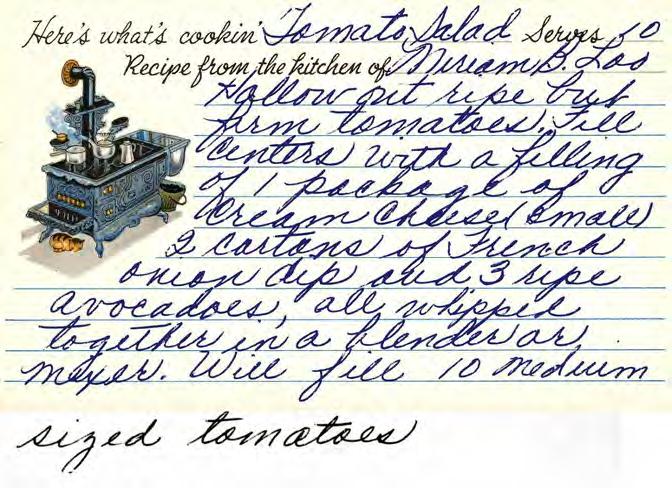 Here's what's cookin' Tomato Salad Serves 10
Recipe from the kitchen of Miriam B. Loo
Hollow out ripe but
firm tomatoes. Fill
centers with a filling
of 1 package of
cream cheese (small)
2 cartons of French
onion dip and 3 ripe
avocadoes, all whipped
together in a blender or
mixer. Will fill 10 medium
sized tomatoes